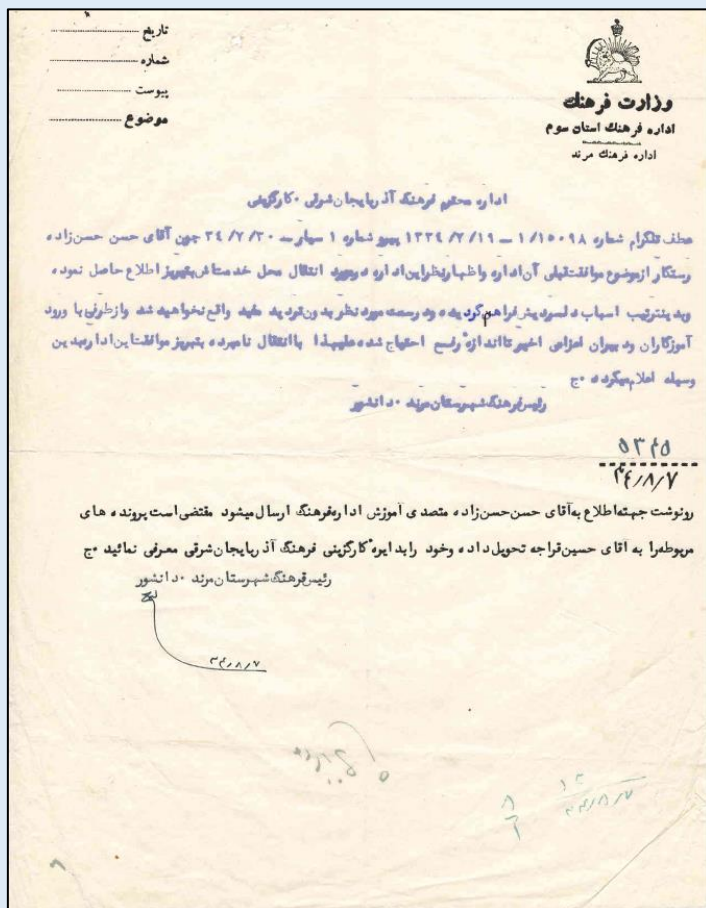 تاریخ
شماره
پیوست
موضوع
وزارت فرهنگ
اداره فرهنگ استان سوم
اداره فرهنگ مرند
اداره محترم فرهنگ آذربایجان شرقی ۰ کارگزینی
عطف تلگرام شماره ۱/۱۵۰۹۸ – ۱۳۳۴/۷/۱۹ پیرو شماره ۱ سیار – ۳۴/۷/۳۰ چون آقای حسن حسن زاده
رستگار از موضوع موافقت قبلی آن اداره و اظهار نظر این اداره در مورد انتقال محل خدمتش بتبریز اطلاع حاصل نموده
وبدینترتیب اسباب دلسردیش فراهم گردیده ودر سمت مورد نظر بدون تردید مفید واقع نخواهید شد واز طرفی با ورود
آموزگاران ودبیران اعزامی اخیر تا اندازه رفع احتیاج شده علیهذا با انتقال نامبرده بتبریز موافقت این اداره بدین
وسیله اعلام میگردد ۰ج
رئیس فرهنگ شهرستان مرند ۰ دانشور
۵۳۴۵
۳۴/۸/۷
رونوشت جهته اطلاع به آقای حسن حسن زاده متصدی آموزش اداره فرهنگ ارسال میشود مقتضی است پرونده های
مربوطه را به آقای حسین قراجه تحویل داده وخود را بدایره کارگزینی فرهنگ آذربایجان شرقی معرفی نمائید ۰ج
رئیس فرهنگ شهرستان مرند ۰ دانشور
۳۴/۸/۷
۳۴/۸/۷